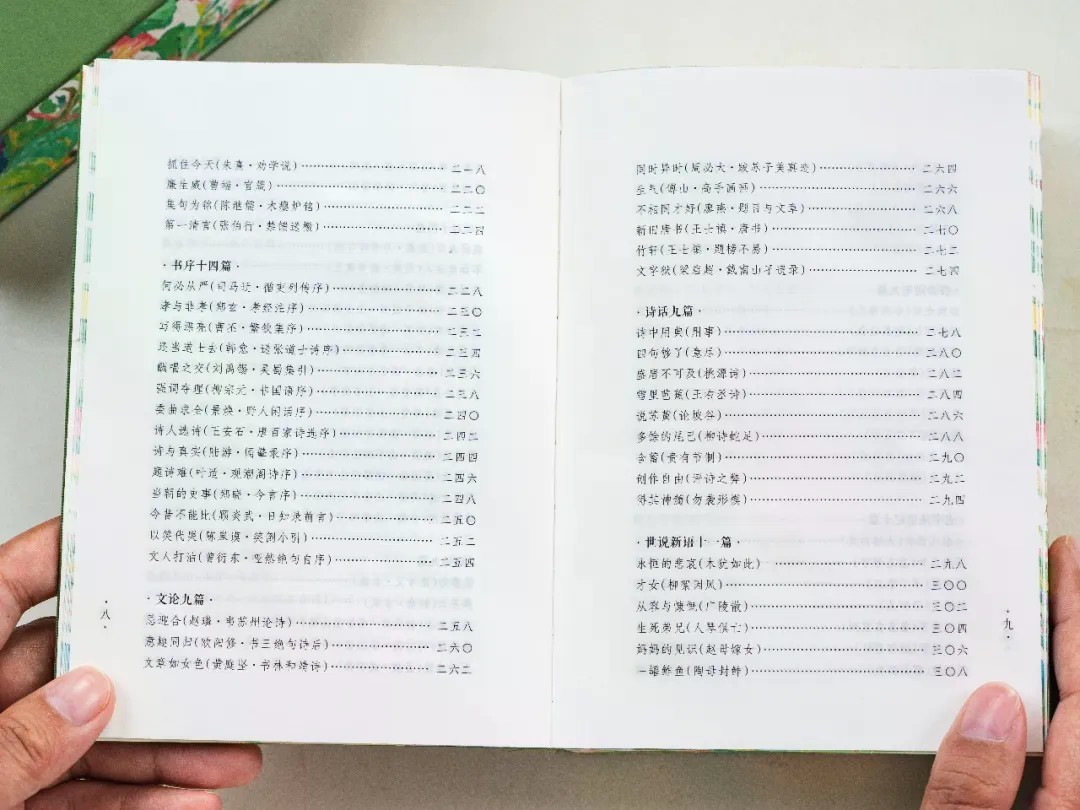 抓住今天(朱熹·劝学说)……二一八
廉生威(曹端·官箴)……二二〇
集句为铭(陈继儒·木瘿炉铭)……二二二
第一清官(张伯行·禁馈送檄)……二二四
·书序十四篇·
何必从严(司马迁·循吏列传序)……二二八
孝与非孝(郑玄·孝经注序)……二三〇
写得漂亮(曹丕·繁钦集序)……二三二
还当道士去(韩愈·送张道士诗序)……二三四
酬唱之交(刘禹锡·吴蜀集引)……二三六
强词夺理(柳宗元·非国语序)……二三八
委曲求全(景焕·野人闲话序)……二四〇
诗人选诗(王安石·唐百家诗选序)……二四二
诗与真实(陆游·闻鼙录序)……二四四
题诗难(叶适·观潮阁诗序)……二四六
当朝的史事(郑晓·今言序)……二四八
今昔不能比(顾炎武·日知录前言)……二五〇
以笑代哭(陈皋谟·笑倒小引)……二五二
文人打油(曾衍东·哑然绝句自序)……二五四
·文论九篇·
忌迎合(赵璘·韦苏州论诗)……二五八
意趣同归(欧阳修·书三绝句诗后)……二六〇
文章如女色(黄庭坚·书林和靖诗)……二六二
·八·
同时异时(周必大·跋苏子美真迹)……二六四
生气(傅山·高手画画)……二六六
不相同才好(廖燕·题目与文章)……二六八
新旧唐书(王士禛·唐书)……二七〇
竹轩(王士禛·题榜不易)……二七二
文字狱(梁启超·戴南山孑遗录)……二七四
·诗话九篇·
诗中用典(用事)……二七八
四句够了(意尽)……二八〇
盛唐不可及(桃源诗)……二八二
雪里芭蕉(王右丞诗)……二八四
说苏黄(论坡谷)……二八六
多余的尾巴(柳诗蛇足)……二八八
含蓄(贵有节制)……二九〇
创作自由(评诗之弊)……二九二
得其神髓(勿袭形模)……二九四
·世说新语十一篇·
永恒的悲哀(木犹如此)……二九八
才女(柳絮因风)……三〇〇
从容与慷慨(广陵散)……三〇二
生死弟兄(人琴俱亡)……三〇四
妈妈的见识(赵母嫁女)……三〇六
一罐鲊鱼(陶母封鲊)……三〇八
·九·